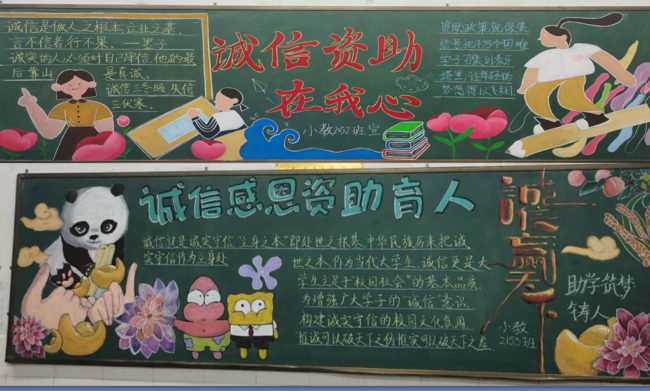 诚信是做人之根本,立业之基。
言不信者,行不果。——墨子
诚实的人必须对自己守信,他的最
后靠山 是真诚。
诚信三冬暖,失信
三伏寒。
诚信资助
在我心
小教2152班宣
资助政策就像集
结号把千万个困难
学子召集到象牙
塔里,让年轻的
梦想得以飞翔
诚信感恩资助育人
诚信就是诚实守信"立身之本"即处世之根基,中华民族历来把诚
实守信作为立身处
世之本,作为当代大学生,诚信更是大
学生立足于"校园社会"的基本品质
为增强广大学子的"诚信"意识
构建诚实守信的校园文化氛围
惟诚可以破天下之伪惟实可以破天下之虚
诚赢天下
小教
2155班
助学筑梦
铸人